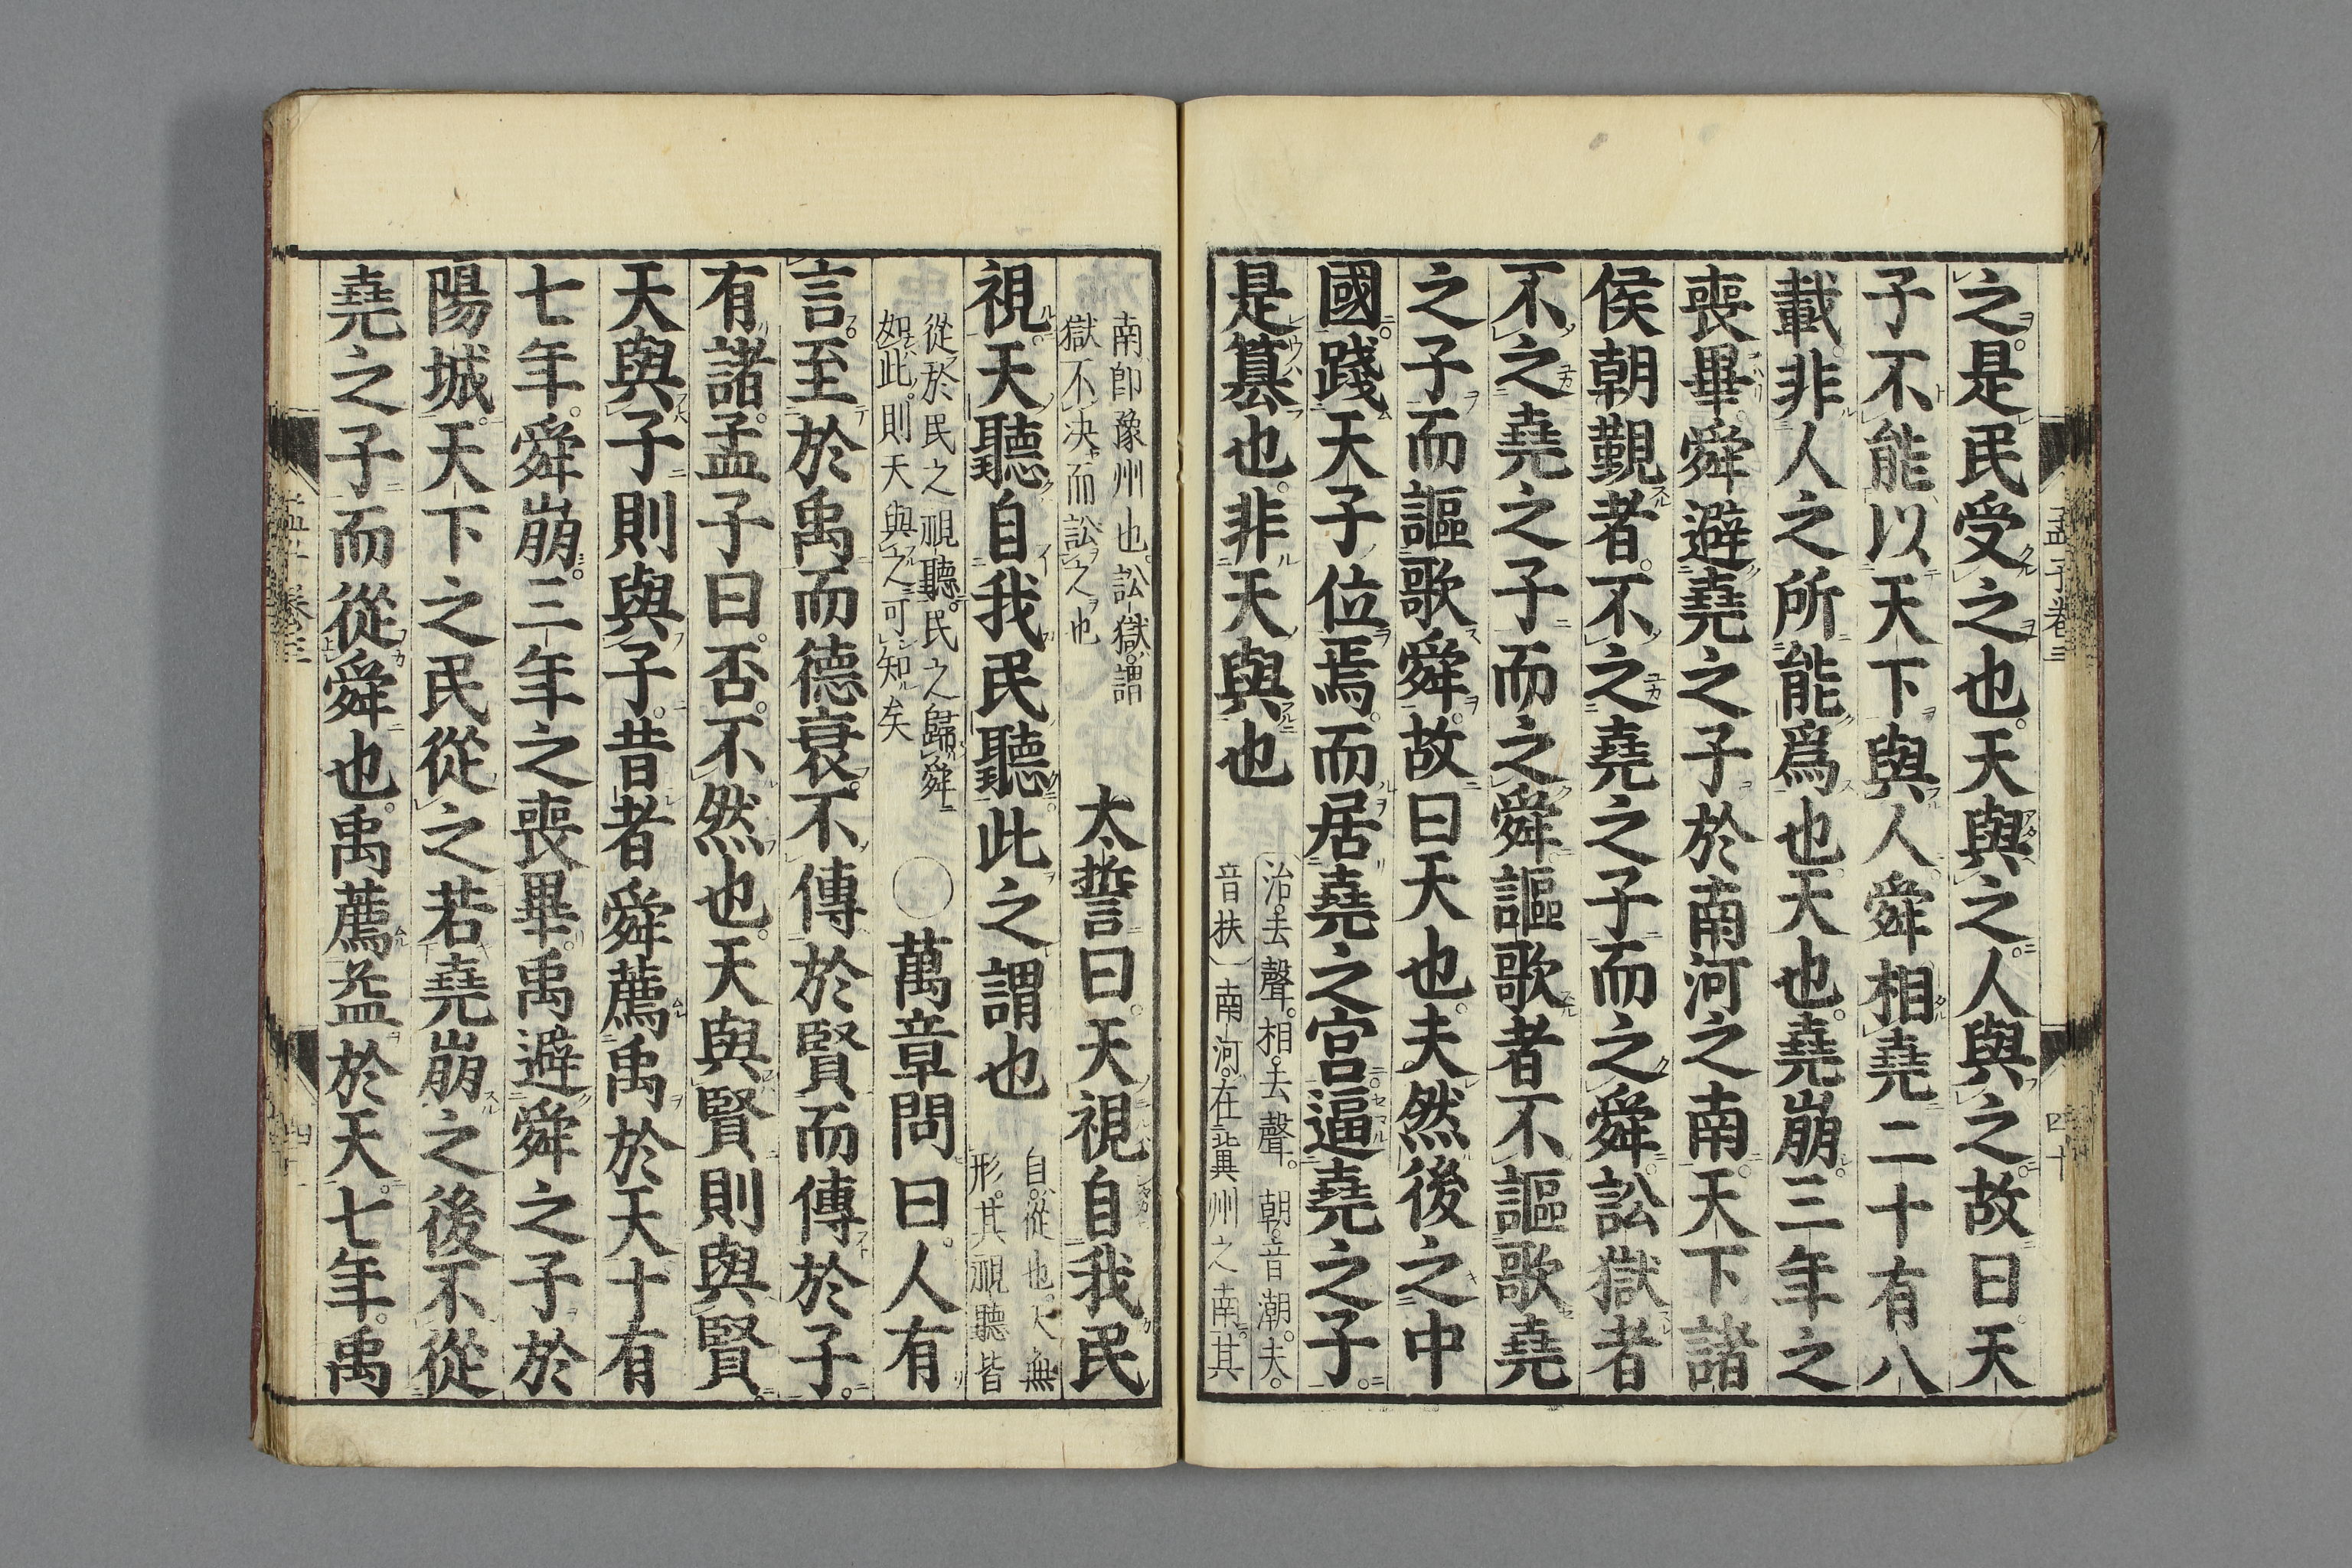 之是民受之也天與之人與之故曰天
子不能以天下與人舜相堯二十有八
載非人之所能爲也天也堯崩三年之
喪畢舜避堯之子於南河之南天下諸
侯朝覲者不之堯之子而之舜訟獄者
不之堯之子而之舜謳歌者不謳歌堯
之子而謳歌舜故曰天也夫然後之中
國踐天子位焉而居堯之宮逼堯之子
是篡也非天與也
治去聲。相去聲。朝音潮。夫。
音扶 南河。在冀州之南。其
南卽豫州也。訟獄。謂
獄不決而訟之也
太誓曰。天視自我民
視。天聽自我民聽此之謂也
自。從也。天無
形。其視聽皆
從於民之視聽。民之歸舜
如此。則天與之可知矣
○萬章問曰。人有
言。至於禹而德衰。不傳於賢而傳於子。
有諸。孟子曰。否。不然也。天與賢則與賢。
天與子則與子。昔者舜薦禹於天十有
七年。舜崩。三年之喪畢。禹避舜之子於
陽城。天下之民從之若堯崩之後不從
堯之子而從舜也。禹薦益於天。七年。禹
孟子卷三
四十